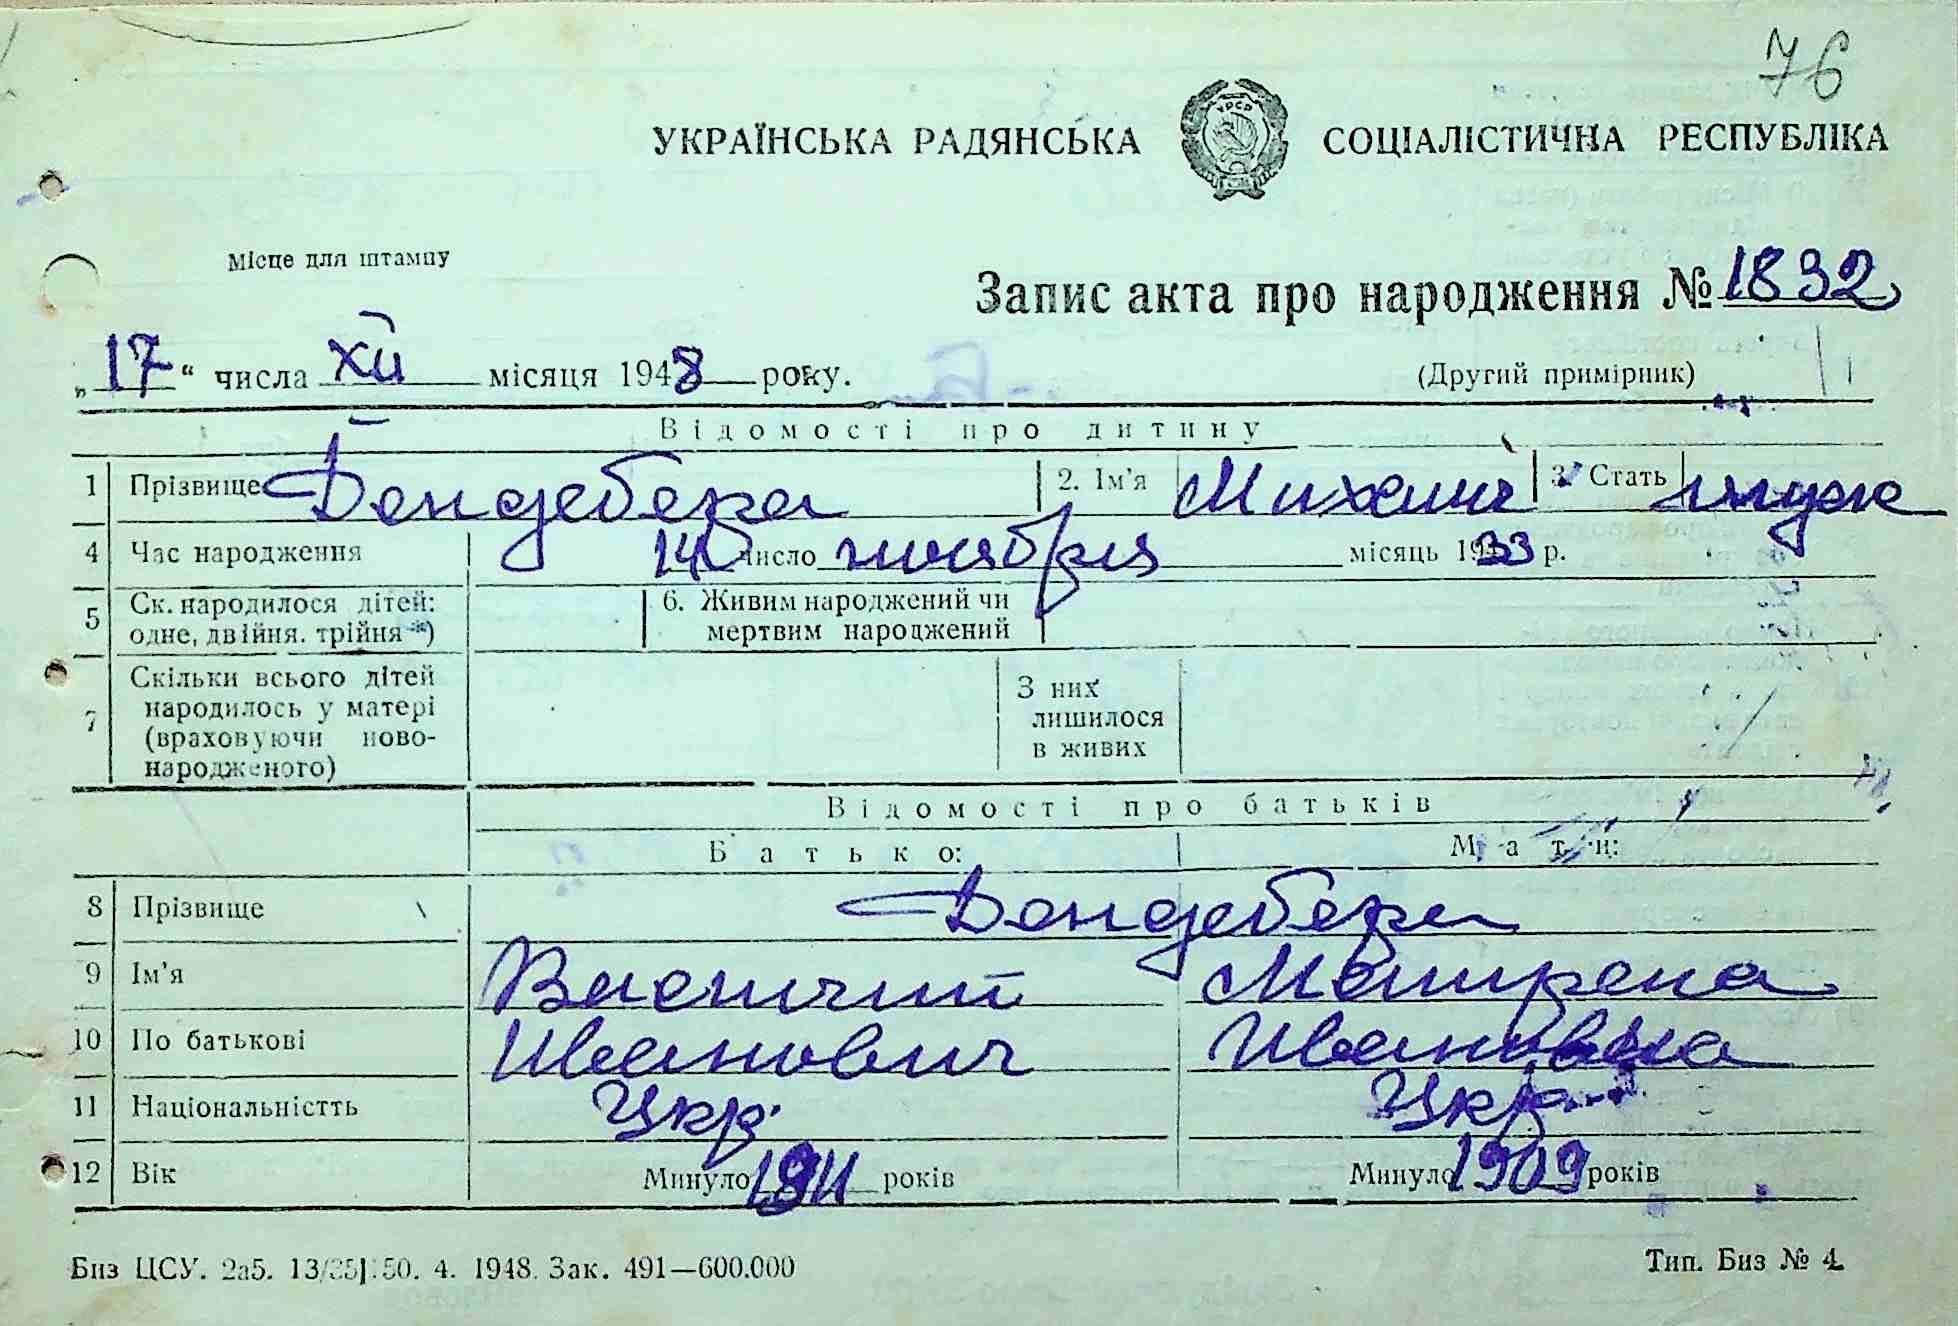 76
УКРАЇНСЬКА РАДЯНСЬКА СОЦІАЛІСТИЧНА РЕСПУБЛІКА
УРСР
Місце для штампу
Запис акта про народження № 1832
„17“ числа XII місяця 1948 року.
(Другий примірник)
Відомості про дитину
1 Прізвище Дендебера 2. Ім'я Михаил 3. Стать муж
4 Час народження 14 число ноября місяць 1933 р.
5 Ск. народилося дітей: одне, двійня. трійня*) 6. Живим народжений чи мертвим народжений
7 Скільки всього дітей народилось у матері (враховуючи новонародженого) З них лишилося в живих
Відомості про батьків
Батько: Мати:
8 Прізвище Дендебера
9 Ім'я Василий Мотрена
10 По батькові Иванович Ивановна
11 Національністть Укр. Укр.
12 Вік Минуло 1911 років Минуло 1909 років
Биз ЦСУ. 2а5. 50. 4. 1948. Зак. 491—600.000 Тип. Биз № 4.